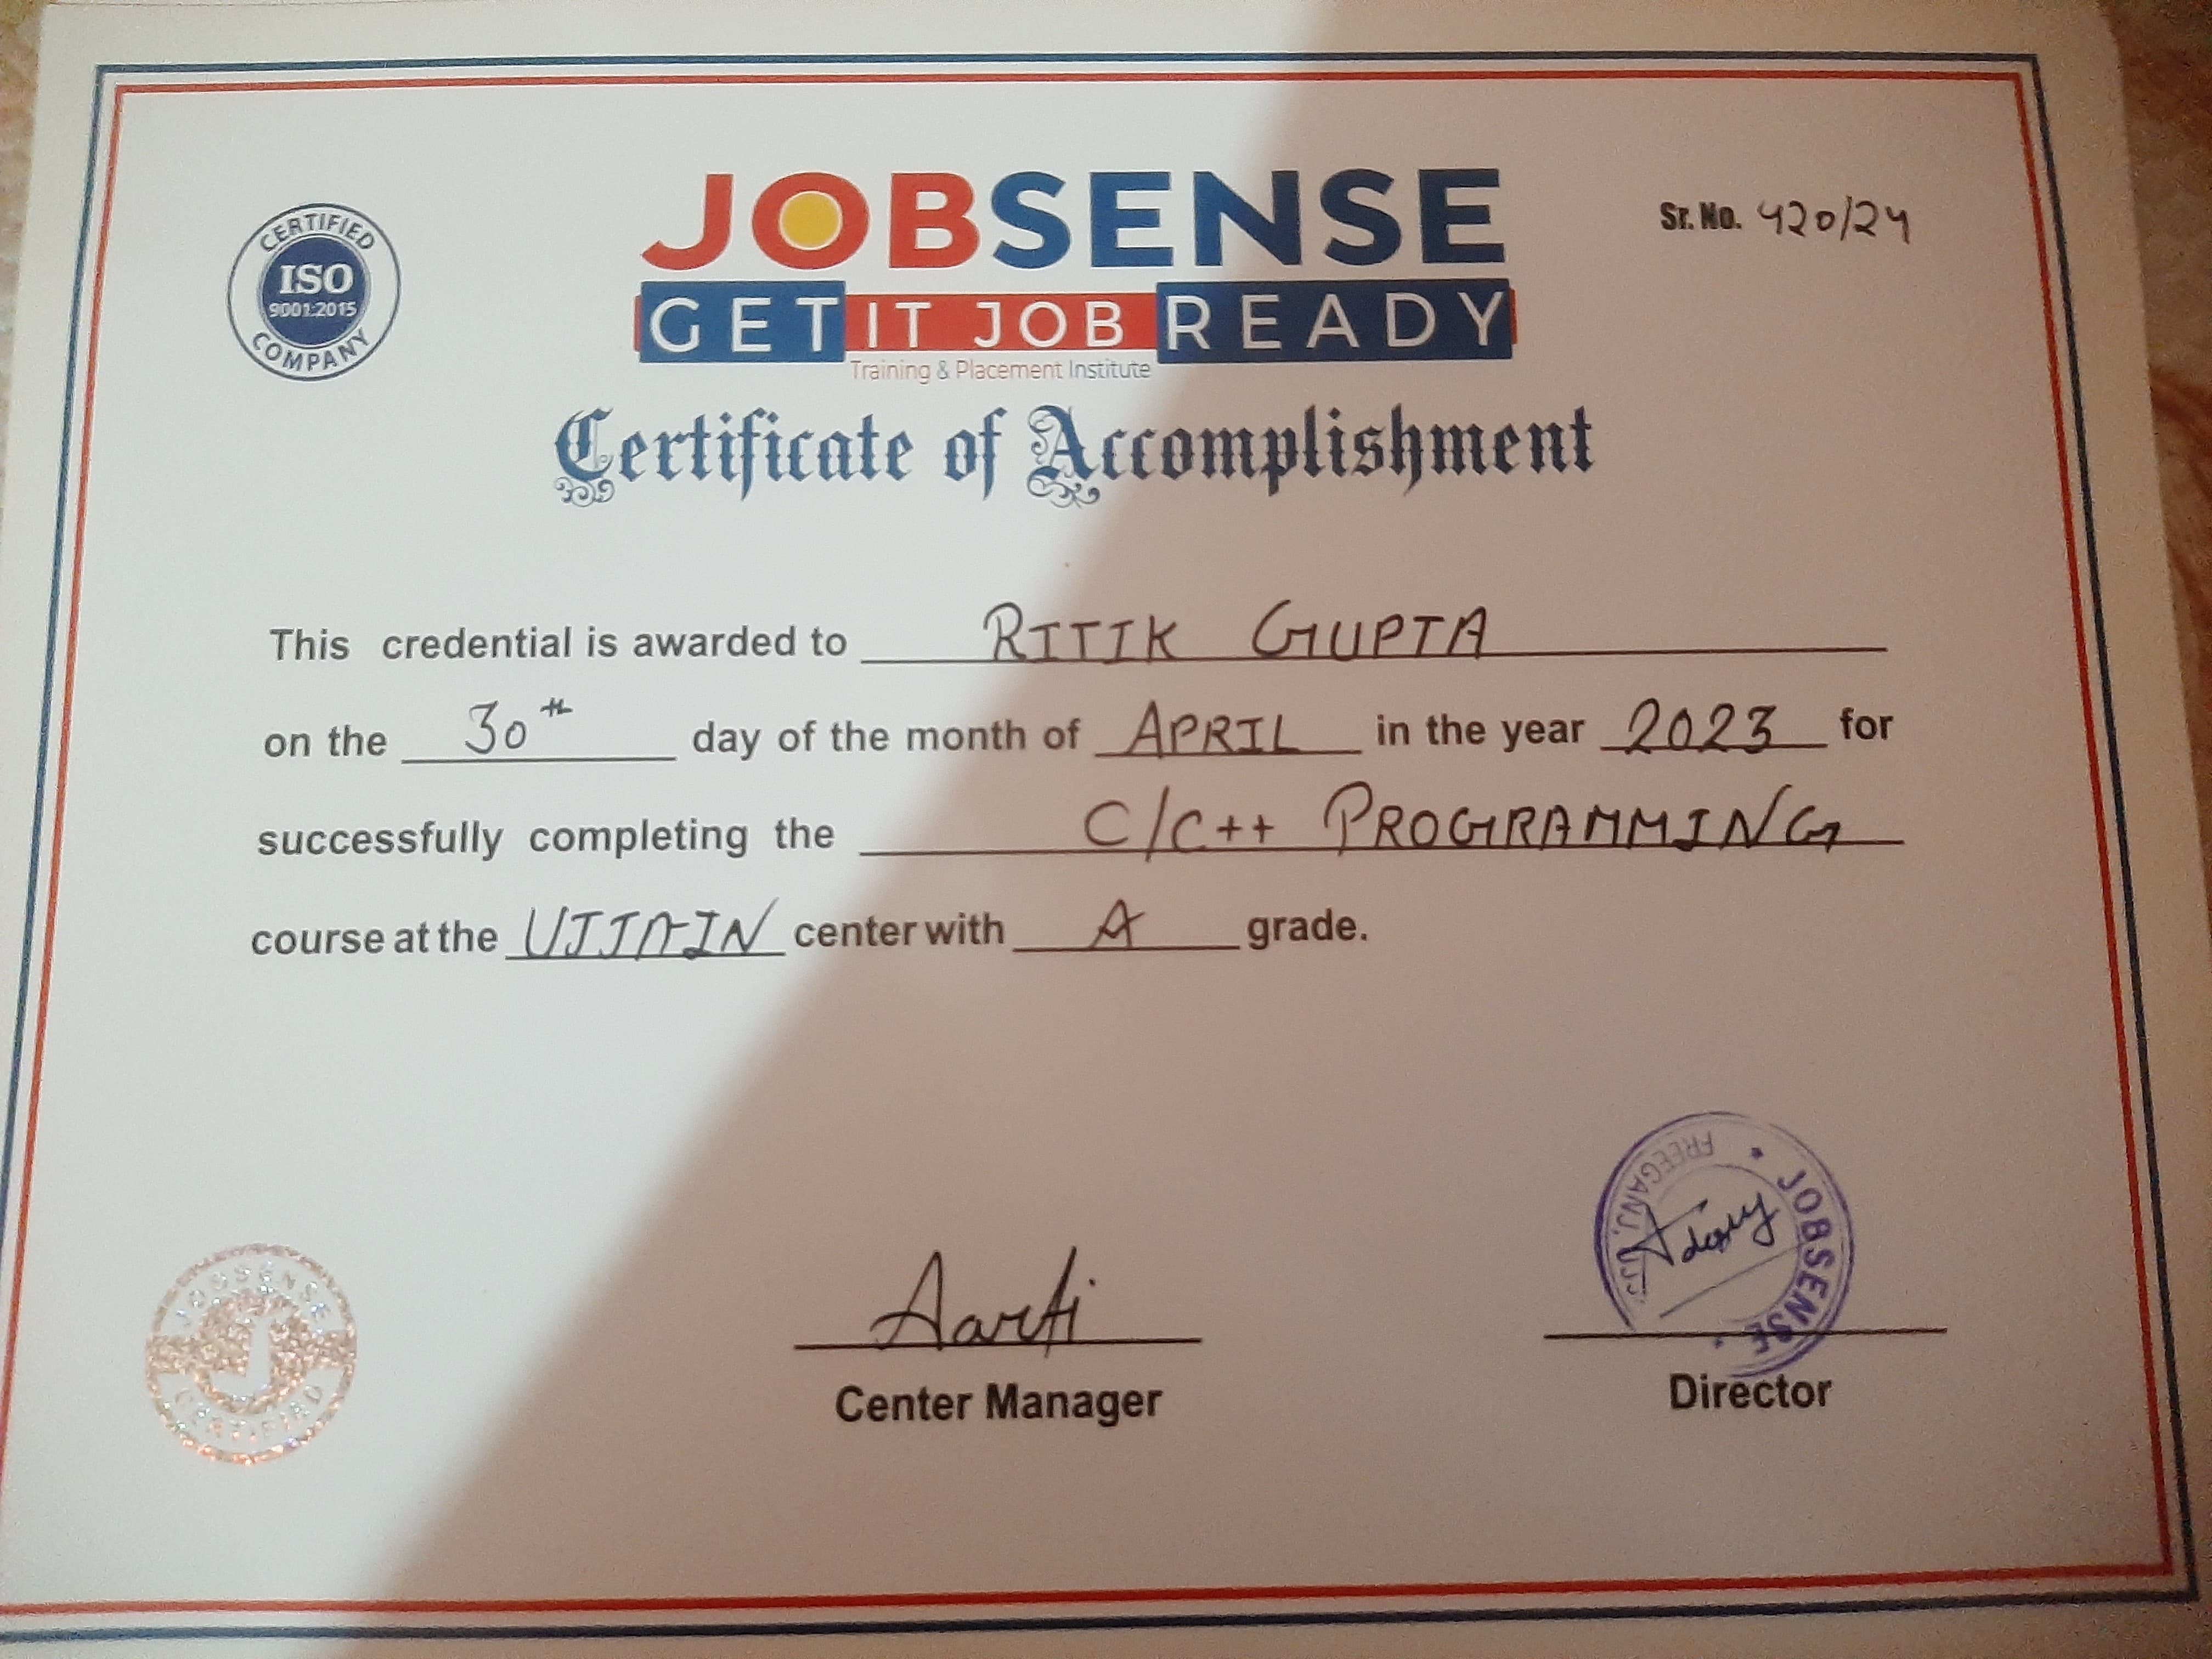 CERTIFIED
ISO
9001:2015
COMPANY
JOBSENSE
GET IT JOB READY
Training & Placement Institute
Sr. No. 420/24
Certificate of Accomplishment
This credential is awarded to RITIK GUPTA
on the 30th day of the month of APRIL in the year 2023 for
successfully completing the C/C++ PROGRAMMING
course at the UJJAIN center with A grade.
JOBSENSE
CERTIFIED
Aarti
Center Manager
JOBSENSE
FREEGANJ,
Director